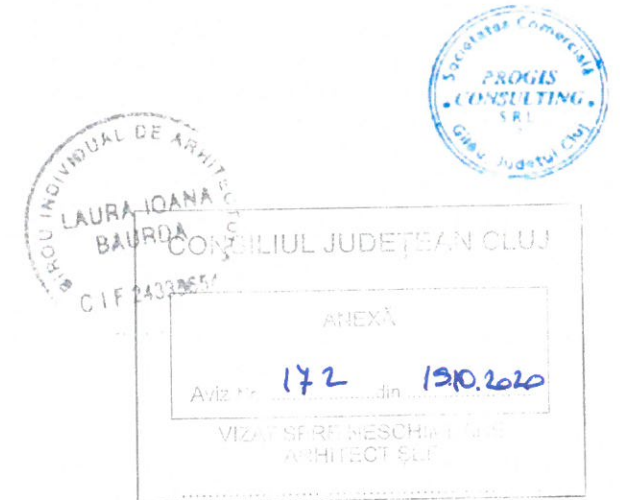 Societatea Comercială
PROGIS
CONSULTING
S R L
Gilău Județul Cluj
BIROU INDIVIDUAL DE ARHITECTURĂ
LAURA IOANA
BAURDA
CIF
CONSILIUL JUDEȚEAN CLUJ
ANEXĂ
Aviz Nr. 172 din 19.10.2020
VIZAT SPRE NESCHIMBARE
ARHITECT ȘEF